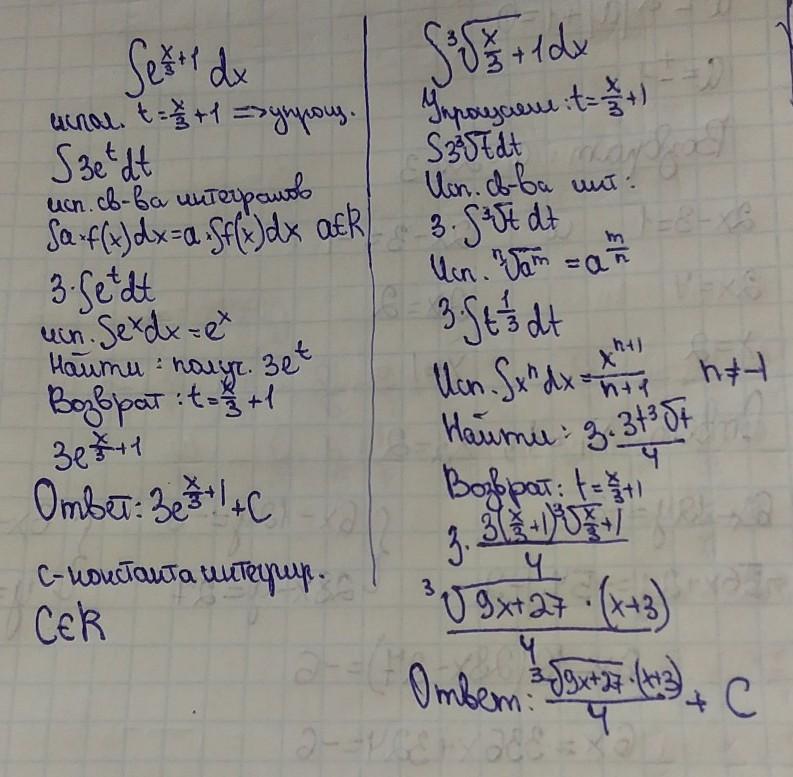 ∫e^(x/3+1) dx
испол. t=x/3+1 =>упрощ.
∫3e^t dt
исп. св-ва интегралов
∫a·f(x)dx=a·∫f(x)dx a∈R
3·∫e^t dt
исп. ∫e^x dx=e^x
Найти: получ. 3e^t
Возврат: t=x/3+1
3e^(x/3+1)
Ответ: 3e^(x/3+1)+C
C-константа интегрир.
C∈R
∫³√(x/3+1) dx
Упрощаем: t=x/3+1
∫3³√t dt
Исп. св-ва инт:
3·∫³√t dt
Исп. ⁿ√a^m = a^(m/n)
3·∫t^(1/3) dt
Исп. ∫x^n dx=x^(n+1)/(n+1) n≠-1
Найти: 3·3t³√t/4
Возврат: t=x/3+1
3·3(x/3+1)³√(x/3+1)/4
³√(9x+27)·(x+3)/4
Ответ: ³√(9x+27)·(x+3)/4 + C